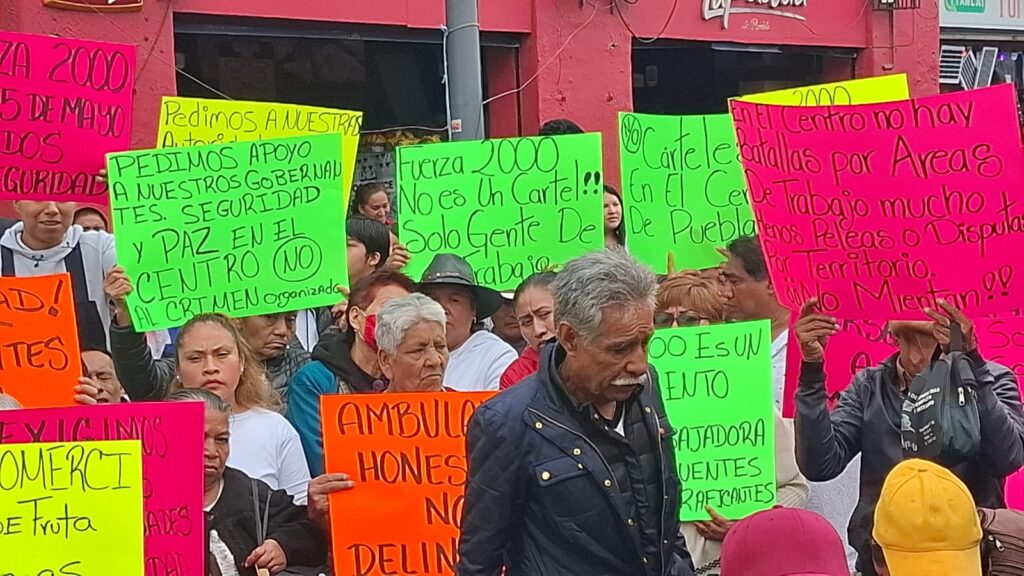 2000
5 DE MAYO
DOS
SEGURIDAD
Pedimos A NUESTRAS
PEDIMOS APOYO
A NUESTROS GOBERNAN
TES. SEGURIDAD
Y PAZ EN EL
CENTRO NO
AL CRIMEN organizado
Fuerza 2000
No es Un Cartel!!
Solo Gente De
Trabajo
NO
Cártele
En El Ce
De Puebla
2000
En el Centro no hay
Batallas por Areas
De Trabajo mucho
Menos Peleas o Disputas
Por Territorio.
¡¡No Mientan!!
DAD!
TES
EXIGIMOS
DADES
OMERCI
De Fruta
AMBUL
HONES
NO
DELIN
OO Es UN
IENTO
BAJADORA
CUENTES
RAFICANTES